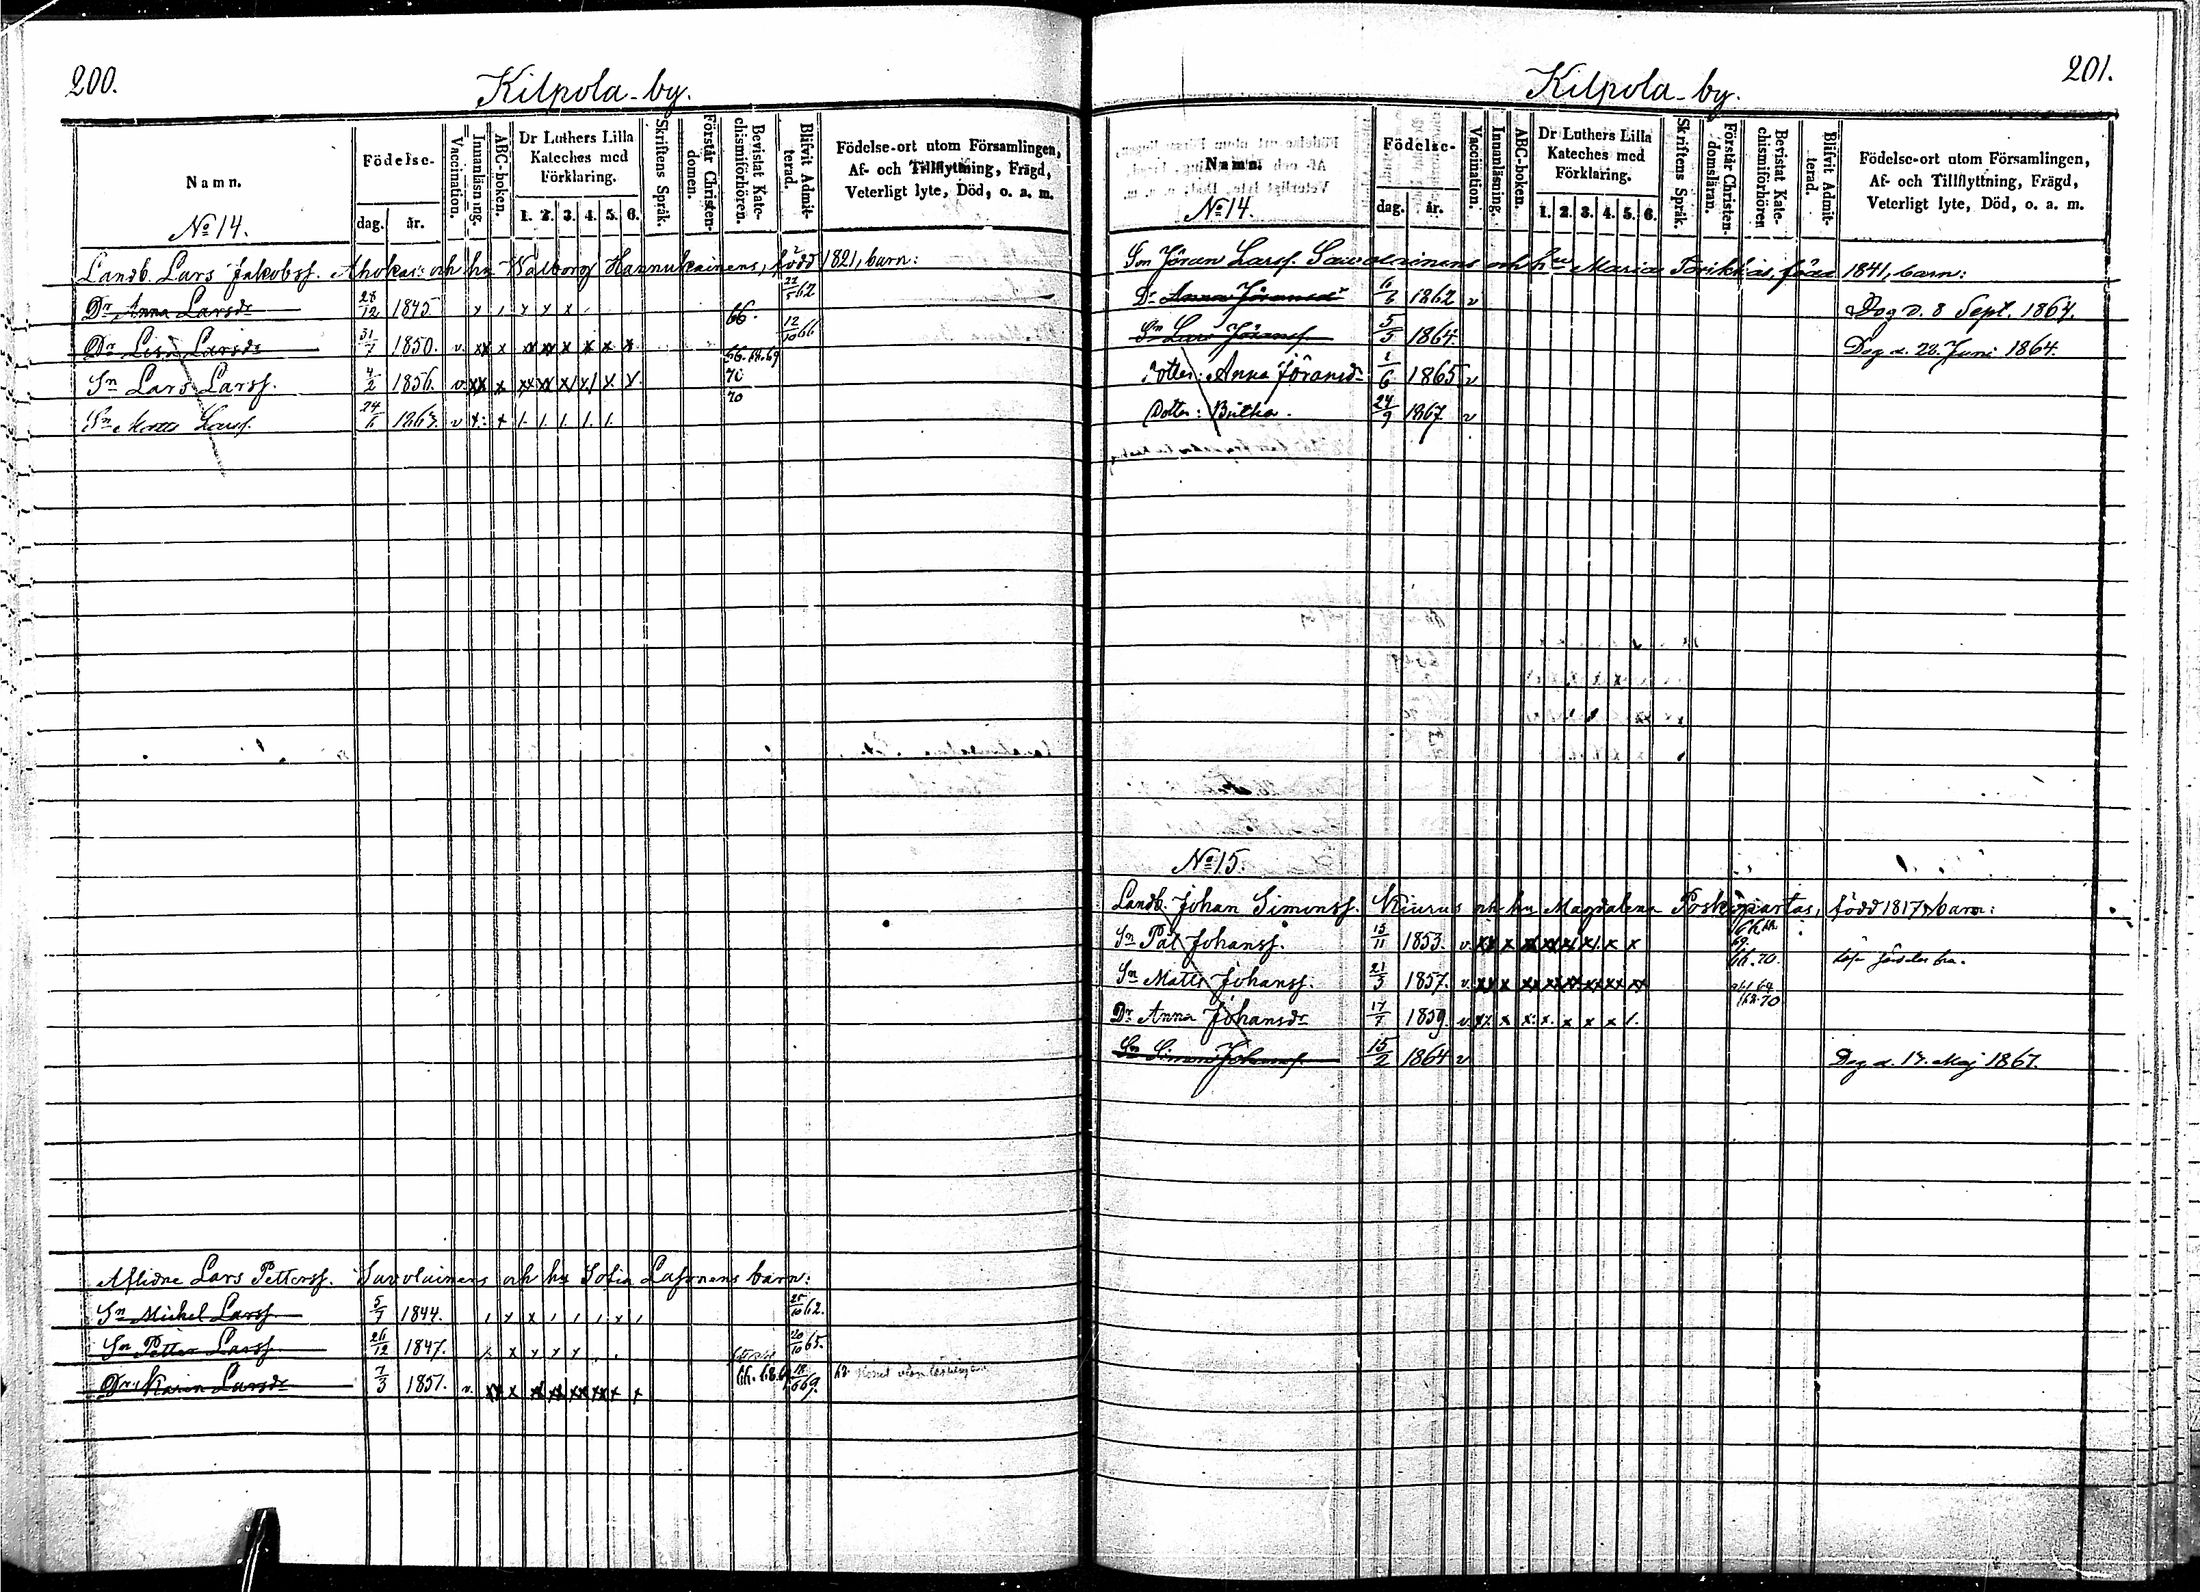 200.
Kilpola by.
Namn.
Födelse-
dag. år.
Vaccination.
Innanläsning.
ABC-boken.
Dr Luthers Lilla Kateches med Förklaring.
1. 2. 3. 4. 5. 6.
Skriftens Språk.
Förstår Christen-domen.
Bevistat Kate-chismiförhören.
Blifvit Admit-terad.
Födelse-ort utom Församlingen,
Af- och Tillflyttning, Frägd,
Veterligt lyte, Död, o. a. m.
No 14.
Landb. Lars Jakobss. Ahokas och hu Walborg Hannukainens, född 1821, barn:
Dr Anna Larsdr 28/12 1845. 66. 22/5 62
Dr Lisa Larsdr 31/7 1850. v. xx x xx xx x x x x 66. 68. 69 12/10 66
Sn Lars Larss. 4/2 1856. v. xx x xx xx x/ x/ x x. 70
Sn Matts Larss. 24/6 1863. v 70
Aflidne Lars Petterss. Savolainens och hu Sofia Lasonens barn:
Sn Michel Larss. 5/7 1844. 25/10 62.
Sn Petter Larss. 26/12 1847. 20/10 65.
Dr Karin Larsdr 7/3 1851. v. xx x xx xx xx xx x x 66. 68. 69 18/6 69.
201.
Kilpola by.
Namn.
Födelse-
dag. år.
Vaccination.
Innanläsning.
ABC-boken.
Dr Luthers Lilla Kateches med Förklaring.
1. 2. 3. 4. 5. 6.
Skriftens Språk.
Förstår Christen-domsläran.
Bevistat Kate-chismiförhören
Blifvit Admit-terad.
Födelse-ort utom Församlingen,
Af- och Tillflyttning, Frägd,
Veterligt lyte, Död, o. a. m.
No 14.
Son Jöran Larss. Savolainens och hu Maria Torikkas, född 1841, barn:
Dr Anna Jöransdr 6/6 1862 v Dog d. 8 Sept. 1864.
Sn Lars Jöranss. 5/5 1864. Dog d. 28. Juni 1864.
Dotter: Anna Jöransdr 1/6 1865 v
Dotter: Britha. 24/9 1867. v
No 15.
Landb. Johan Simonss. Kiurus och hu Magdalena Poskipartas, född 1817, barn:
Sn Pål Johanss. 15/11 1853. v. xx x xx xx x/ x/. x x 69.
Sn Matts Johanss. 21/3 1857. v. xx x xx xx xx xx xx xx 66. 70.
Dr Anna Johansdr 17/7 1859. v. x x. x x x 1. 68. 70
Sn Simon Johanss. 15/2 1864 v Dog d. 17. Maj 1867.